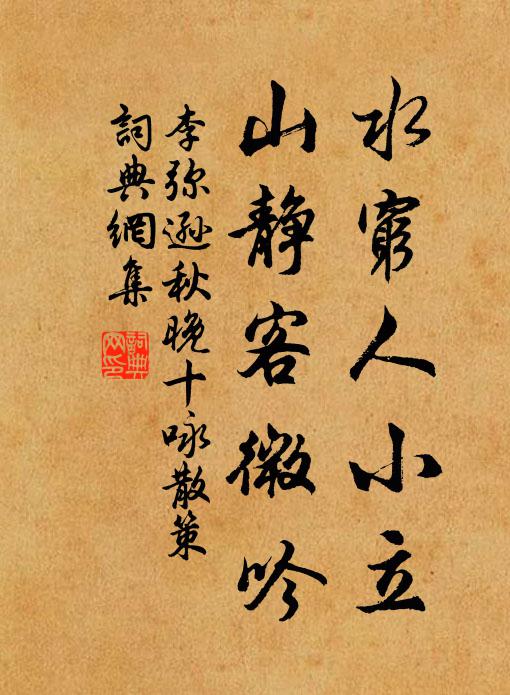 水窮人小立
山靜客微吟
李弥遜秋晚十咏散策
詞典網集
詞典
网印